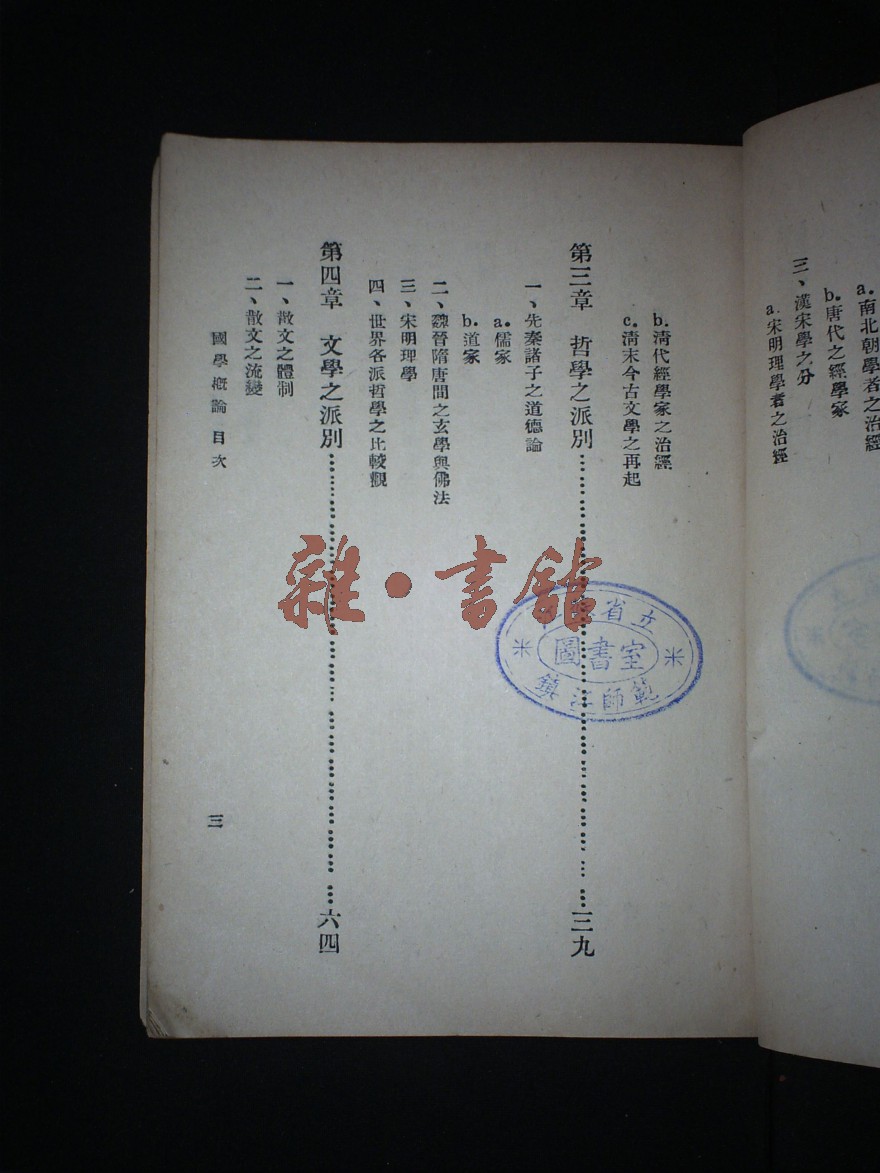 a. 南北朝學者之治經
b. 唐代之經學家
三、漢宋學之分
a. 宋明理學者之治經
b. 清代經學家之治經
c. 清末今古文學之再起
第三章　哲學之派別……三九
一、先秦諸子之道德論
a. 儒家
b. 道家
二、魏晉隋唐間之玄學與佛法
三、宋明理學
四、世界各派哲學之比較觀
第四章　文學之派別……六四
一、散文之體制
二、散文之流變
國學概論　目次
三
雜・書館
省立
圖書室
鎮江師範